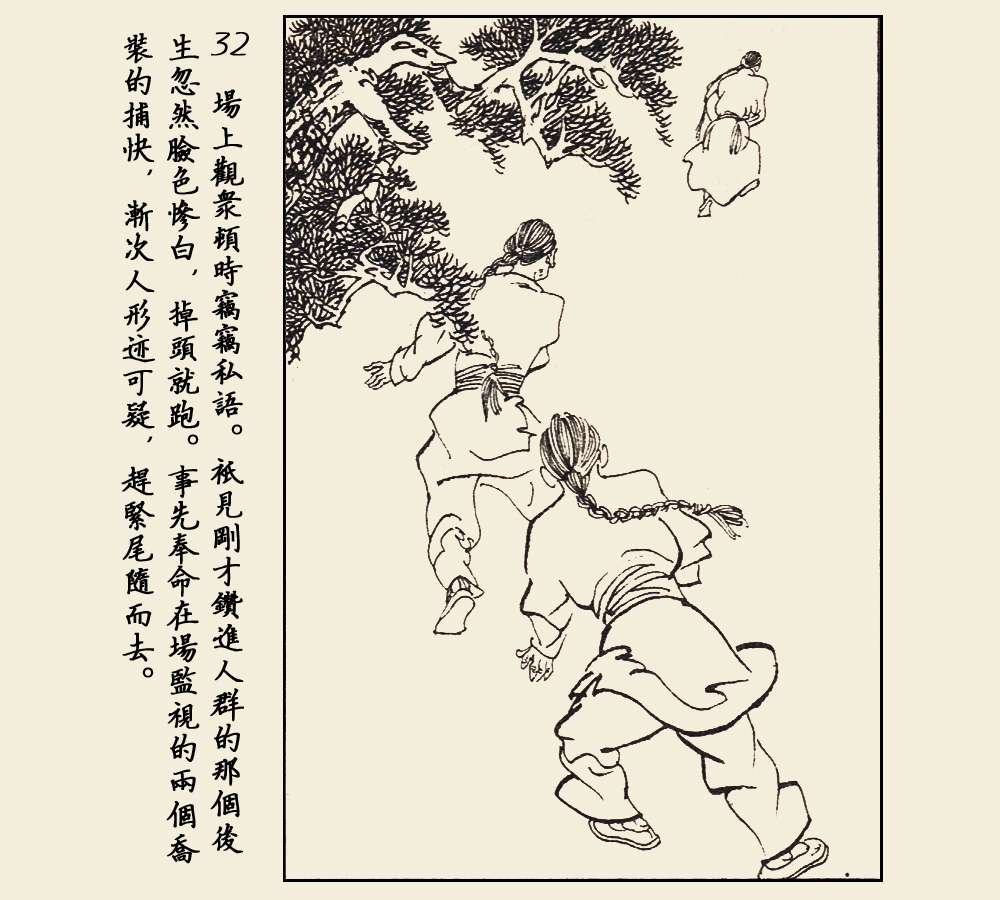 32 場上觀衆頓時竊竊私語。祗見剛才鑽進人群的那個後
生忽然臉色慘白，掉頭就跑。事先奉命在場監視的兩個喬
裝的捕快，漸次人形迹可疑，趕緊尾隨而去。